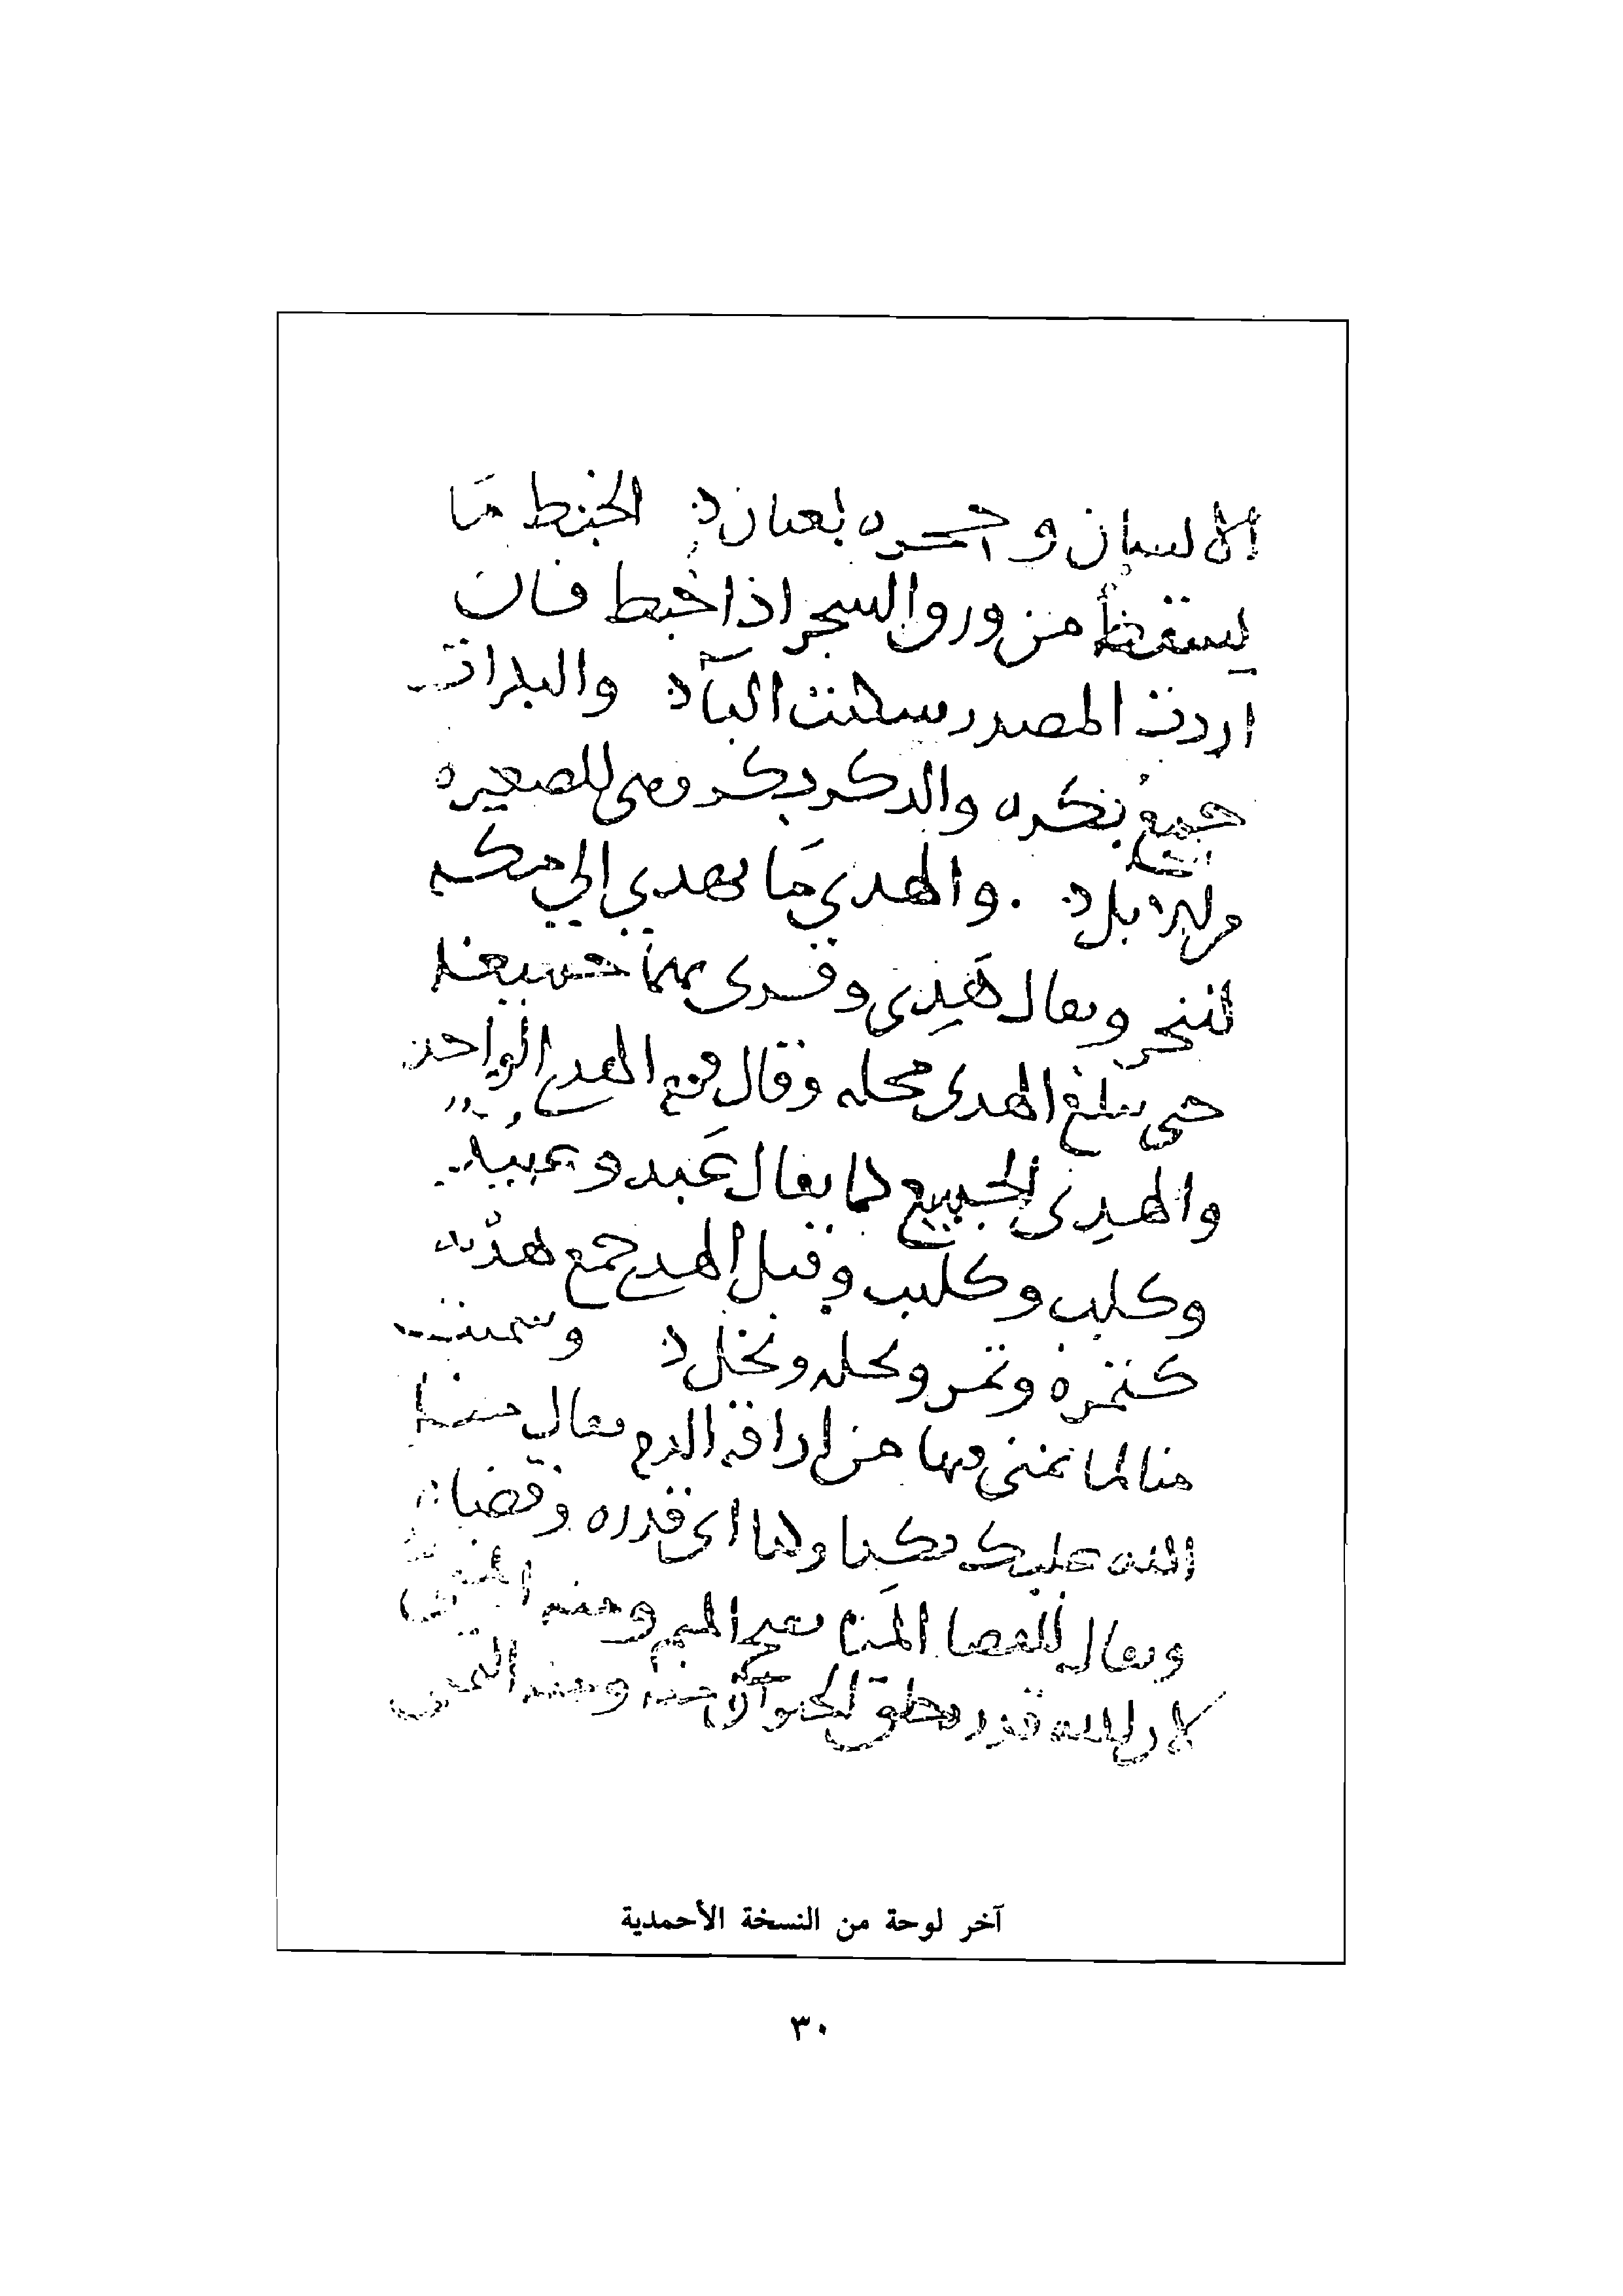 الانسان و احـــره لعتان ﮰ الخبط مَا
يسقط من ورق الشجر اذا خُبط فان
اردت المصدر سكنت البآء ﮰ والبكرات
جمعُ بكره والذكر بكر وهي للصغيره
من الابل ﮰ . والهدي مَا يهدي الي مكه
لتنحر ويقال هَدِي وقرى بهما حتي يبلغ
حتي يبلغ الهدي محله وقال قوم الهدي الواحد
والهدِي الجميع كما يقال عَبد وعبيد
وكلب وكليب وقيل الهدي جمع هديه
كتمرة وتمر ونخله ونخل ﮰ وسميت
منا لما تمني فيها من اراقه الدم يقال منا
الله عليك بكذا وكذا اي قدره وقضاه
ويقال للقضا المَنا بفتح الميم ومنه
لان الله قدر بخلق الحيوان منه ومنه التمني
آخر لوحة من النسخة الأحمدية
٣٠